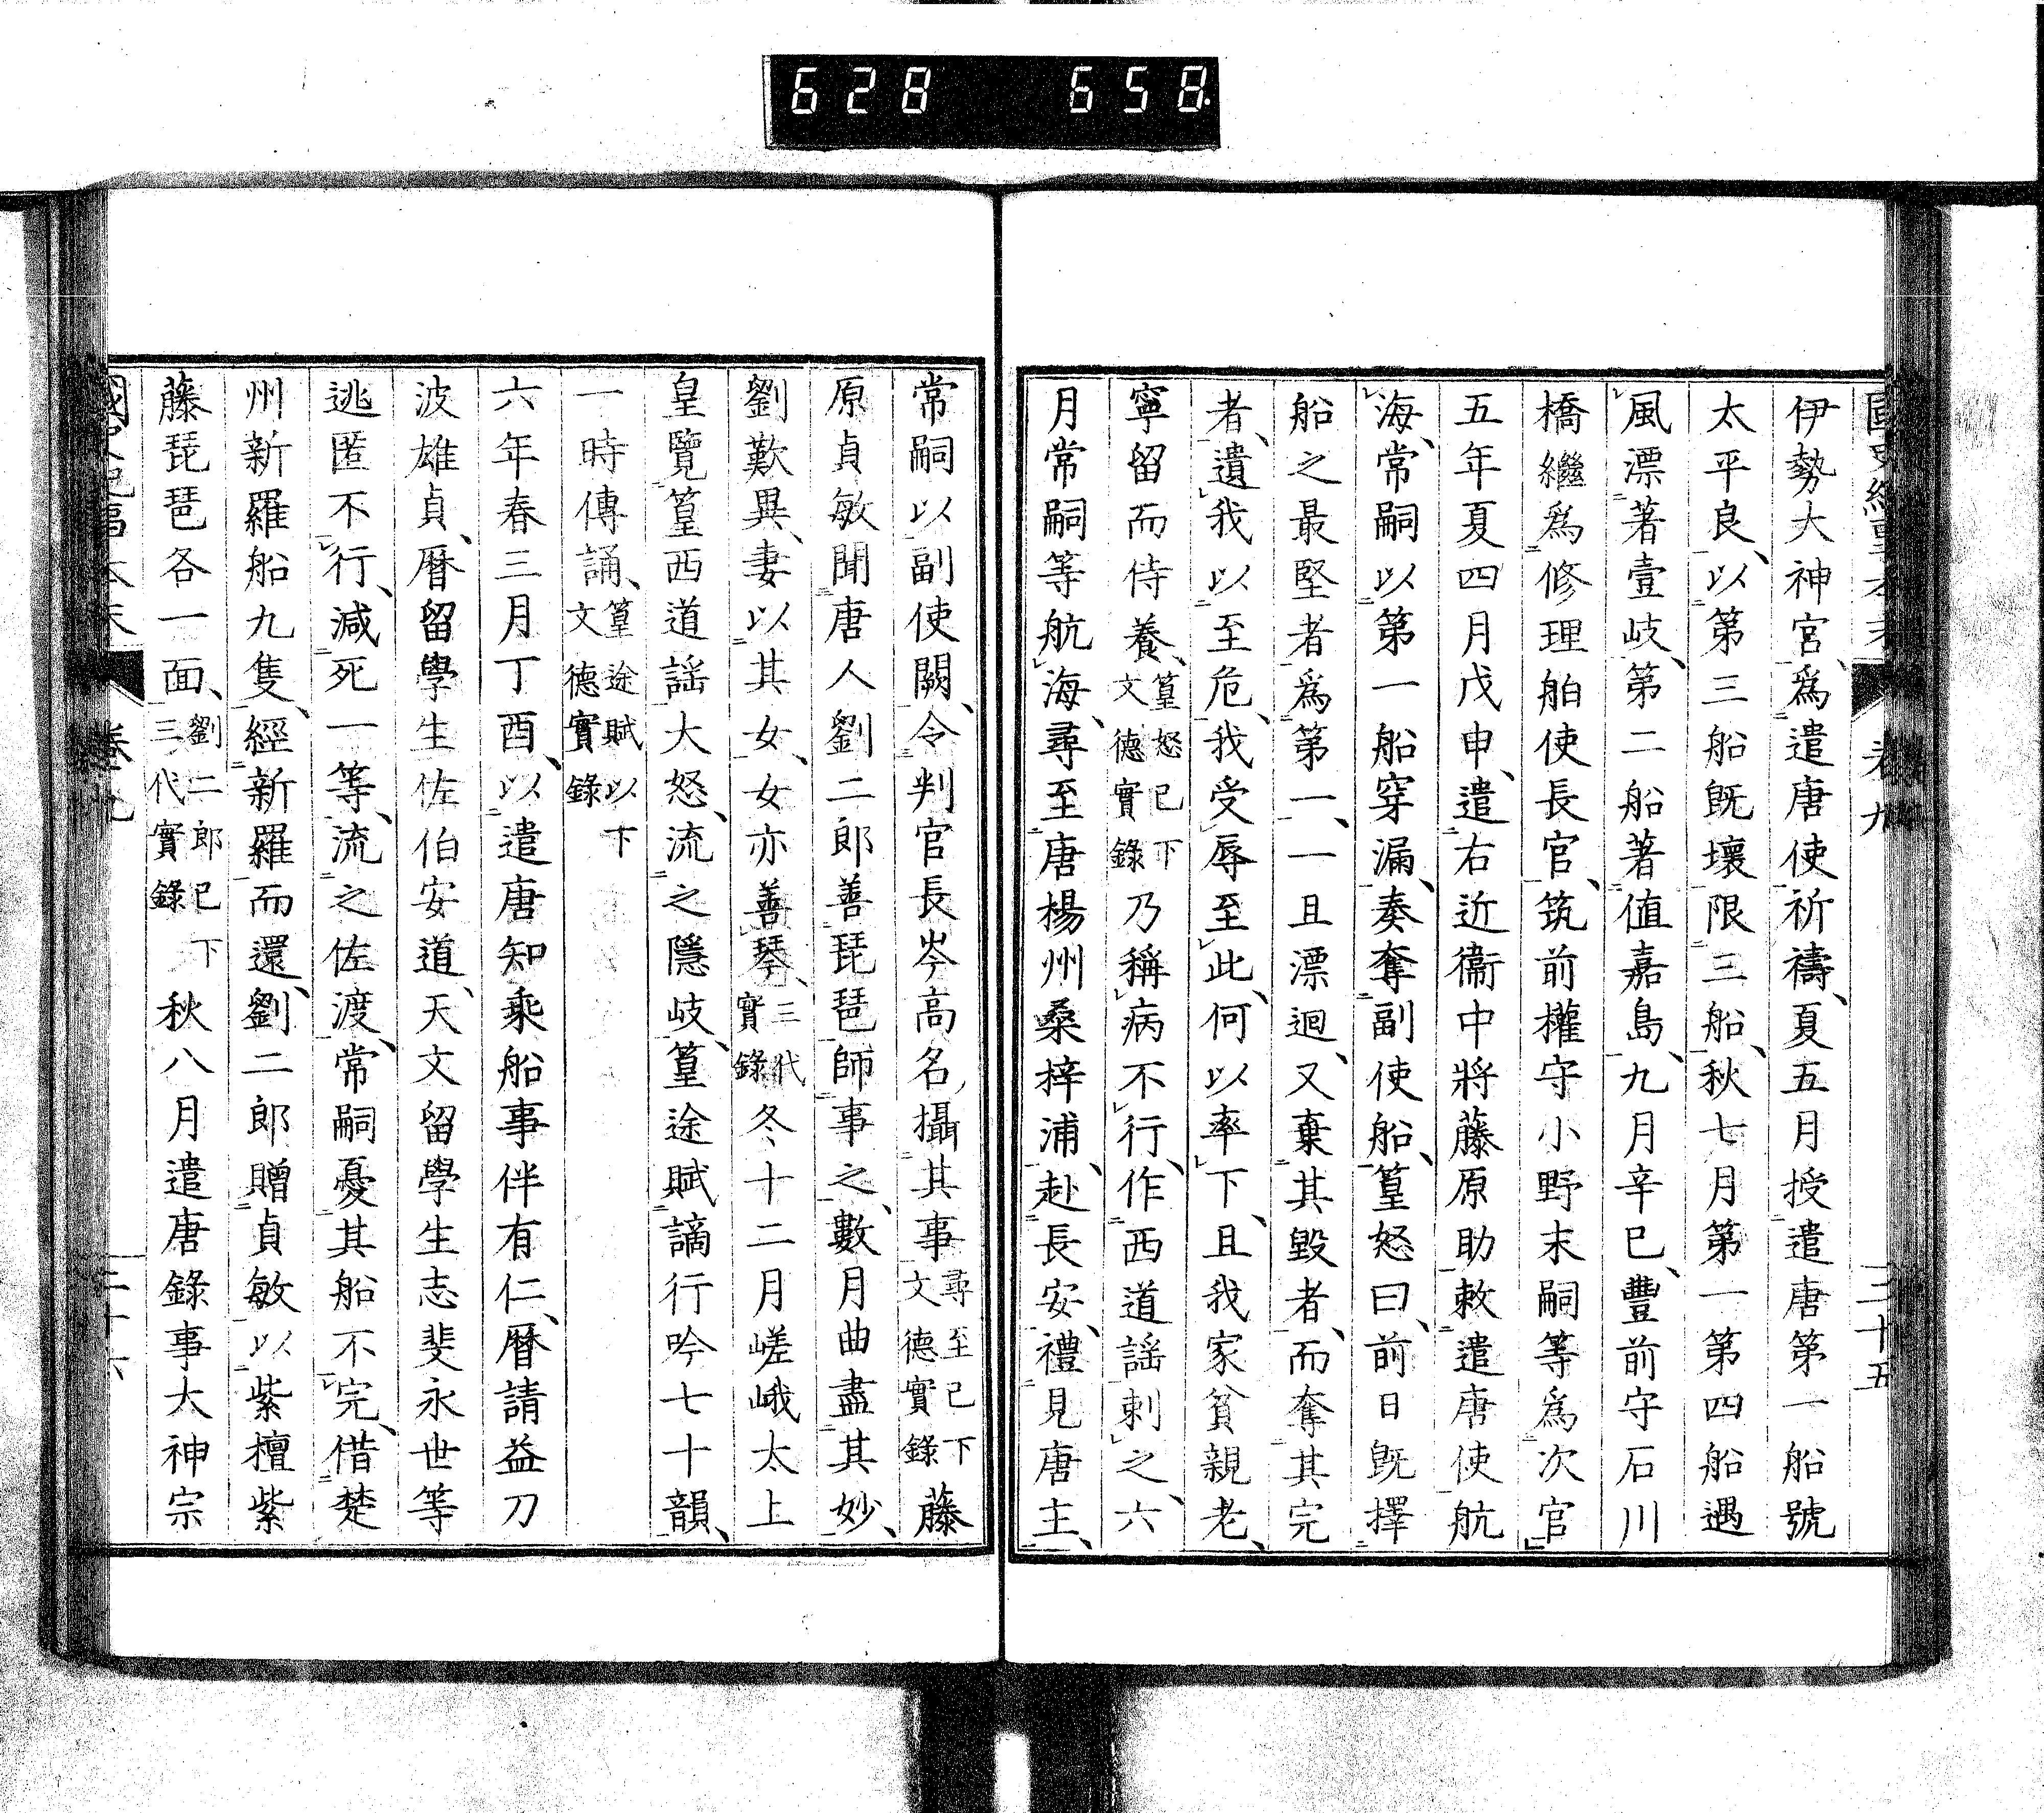 628 658
卷九
三十五
伊勢大神宮、爲遣唐使祈禱、夏五月授遣唐第一船號
太平良、以第三船既壞限三船、秋七月第一第四船遇
風漂著壹岐、第二船著値嘉島、九月辛巳、豐前守石川
橋繼爲修理舶使長官、筑前權守小野末嗣等爲次官、
五年夏四月戊申、遣右近衞中將藤原助敕遣唐使航
海、常嗣以第一船穿漏、奏奪副使船、篁怒曰、前日既擇
船之最堅者爲第一、一且漂迴、又棄其毀者、而奪其完
者、遺我以至危、我受辱至此、何以率下、且我家貧親老、
寧留而侍養、篁怒已下文德實錄乃稱病不行、作西道謡刺之、六
月常嗣等航海、尋至唐楊州桑梓浦、赴長安、禮見唐主、
常嗣以副使闕、令判官長岑高名攝其事尋至已下文德實錄藤
原貞敏聞唐人劉二郎善琵琶師事之、數月曲盡其妙、
劉歎異、妻以其女、女亦善琴、三代實錄冬十二月嵯峨太上
皇覽篁西道謡大怒、流之隱岐、篁途賦謫行吟七十韻、
一時傳誦、篁途賦以下文德實錄
六年春三月丁酉、以遣唐知乘船事伴有仁、曆請益刀
波雄貞、曆留學生佐伯安道、天文留學生志斐永世等
逃匿不行、減死一等、流之佐渡、常嗣憂其船不完、借楚
州新羅船九隻、經新羅而還、劉二郎贈貞敏以紫檀紫
藤琵琶各一面、劉二郎已下三代實錄秋八月遣唐錄事大神宗
卷九